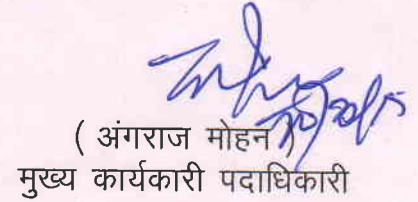 ( अंगराज मोहन )
मुख्य कार्यकारी पदाधिकारी